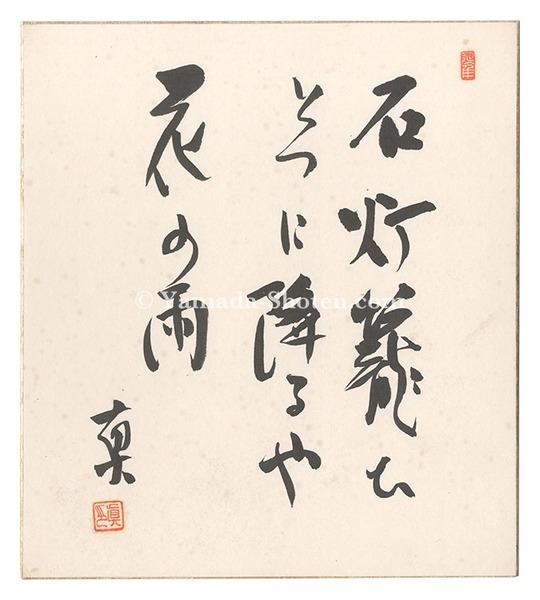 石灯籠ひ
とつに降るや
花の雨
真
© Yamada-Shoten.com